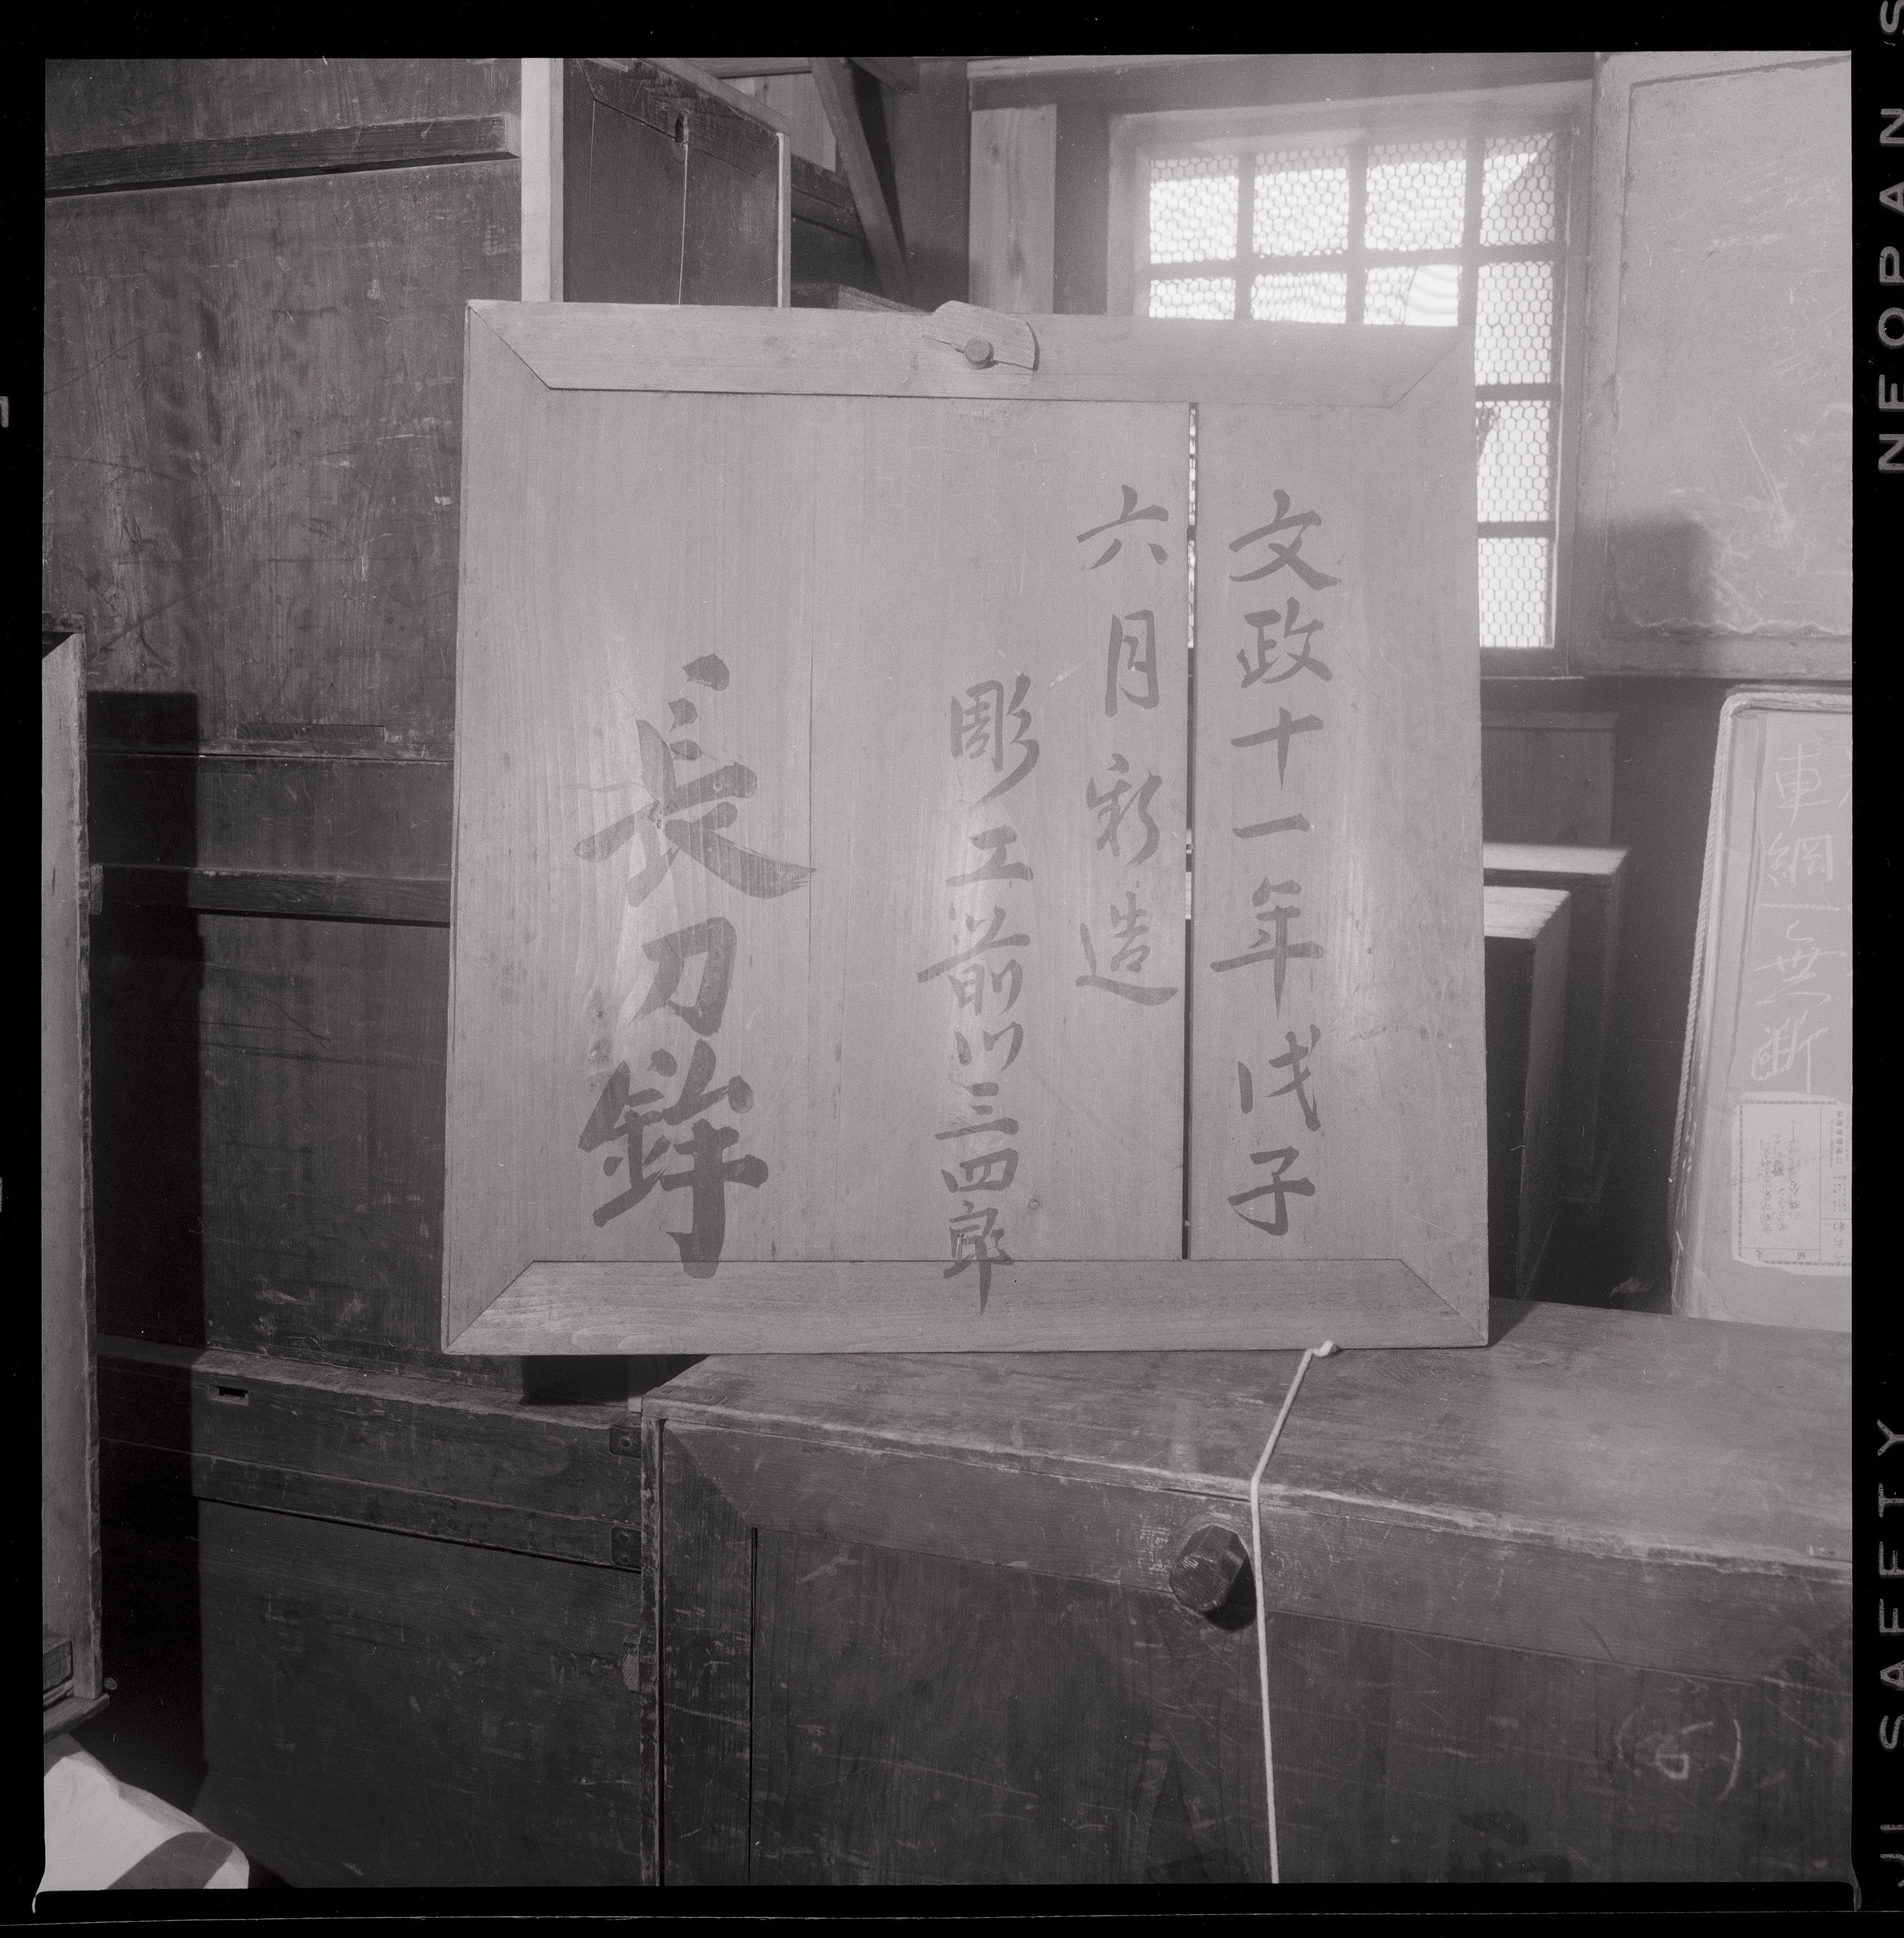 文政十一年戊子
六月彩造
彫工前川三四郎
長刀鉾
車綱一号
NEOPAN S
SAFETY